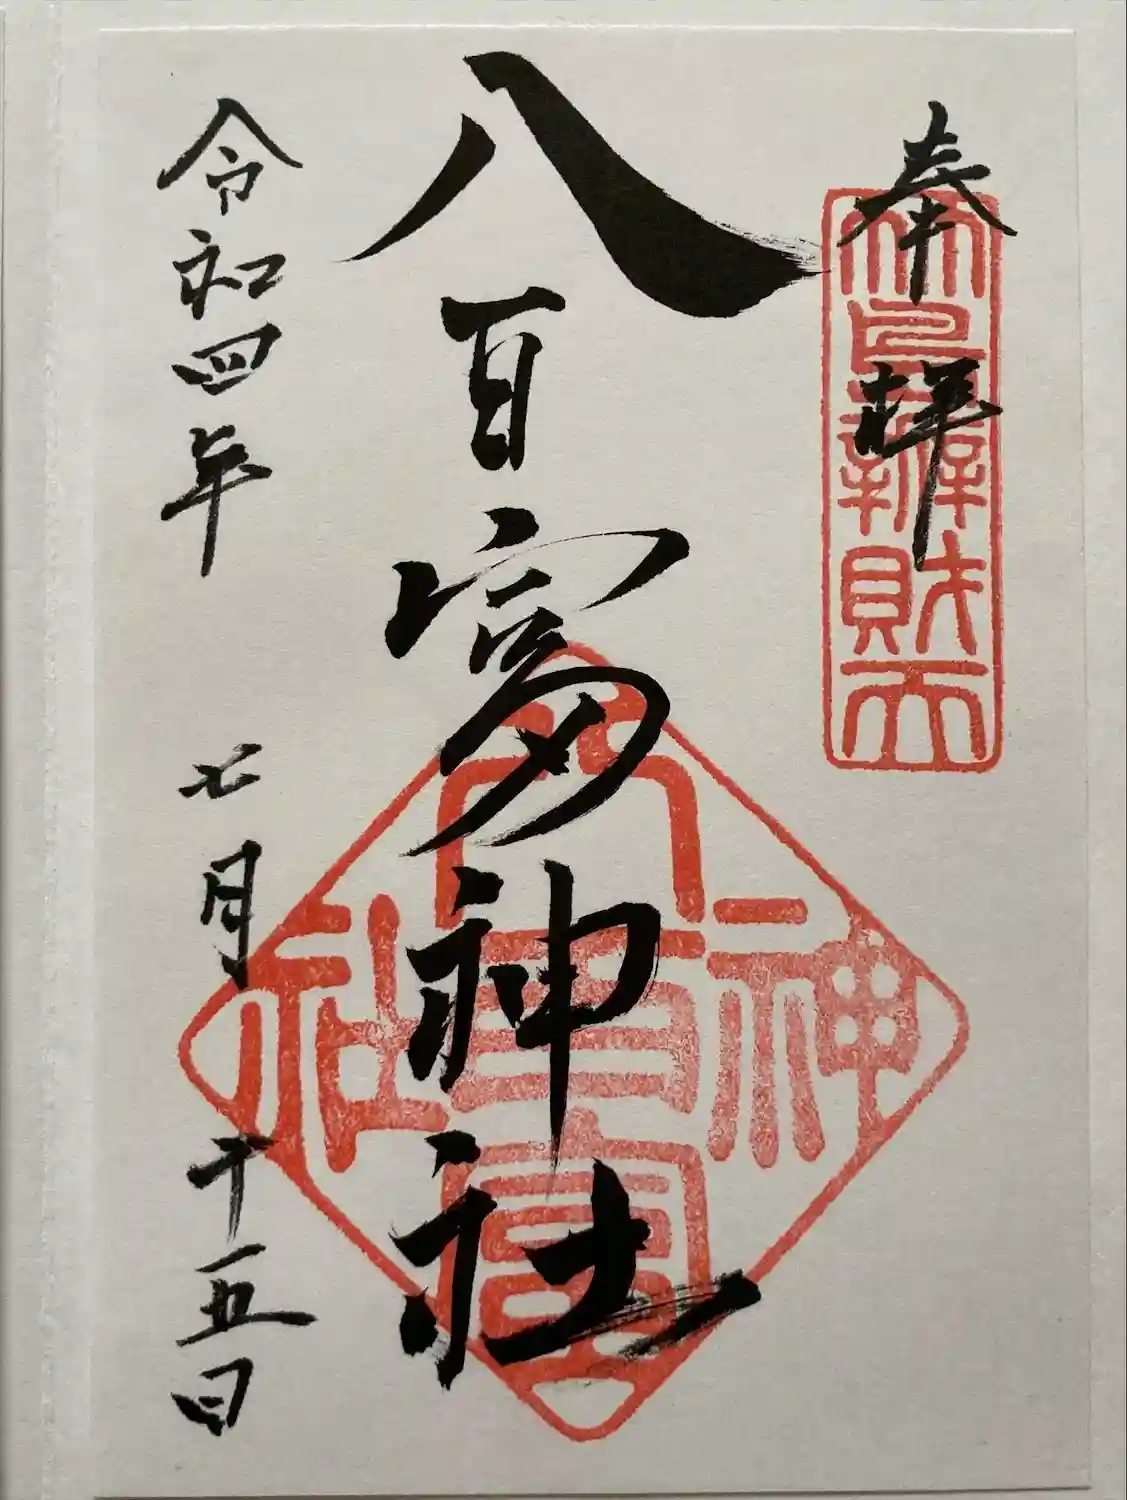 奉拝
開運辨財天
八百富神社
八百富神社
令和四年 七月 十五日